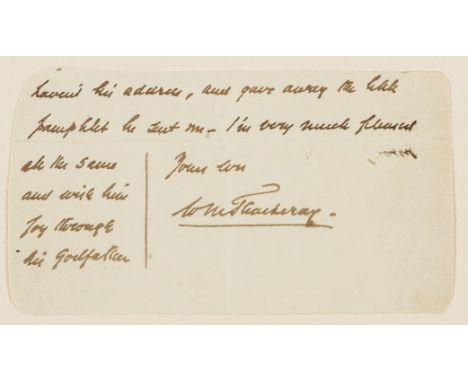 haven't his address, and gave away the little
pamphlet he sent me - I'm very much pleased
all the same
and wish him
joy through
his Godfather
Yours ever
WMThackeray.